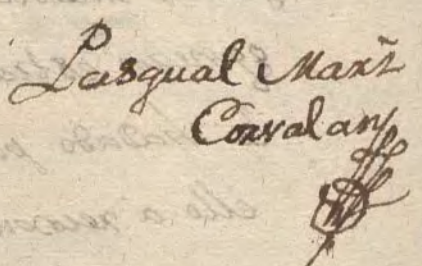 Pasqual Marz
Corvalan